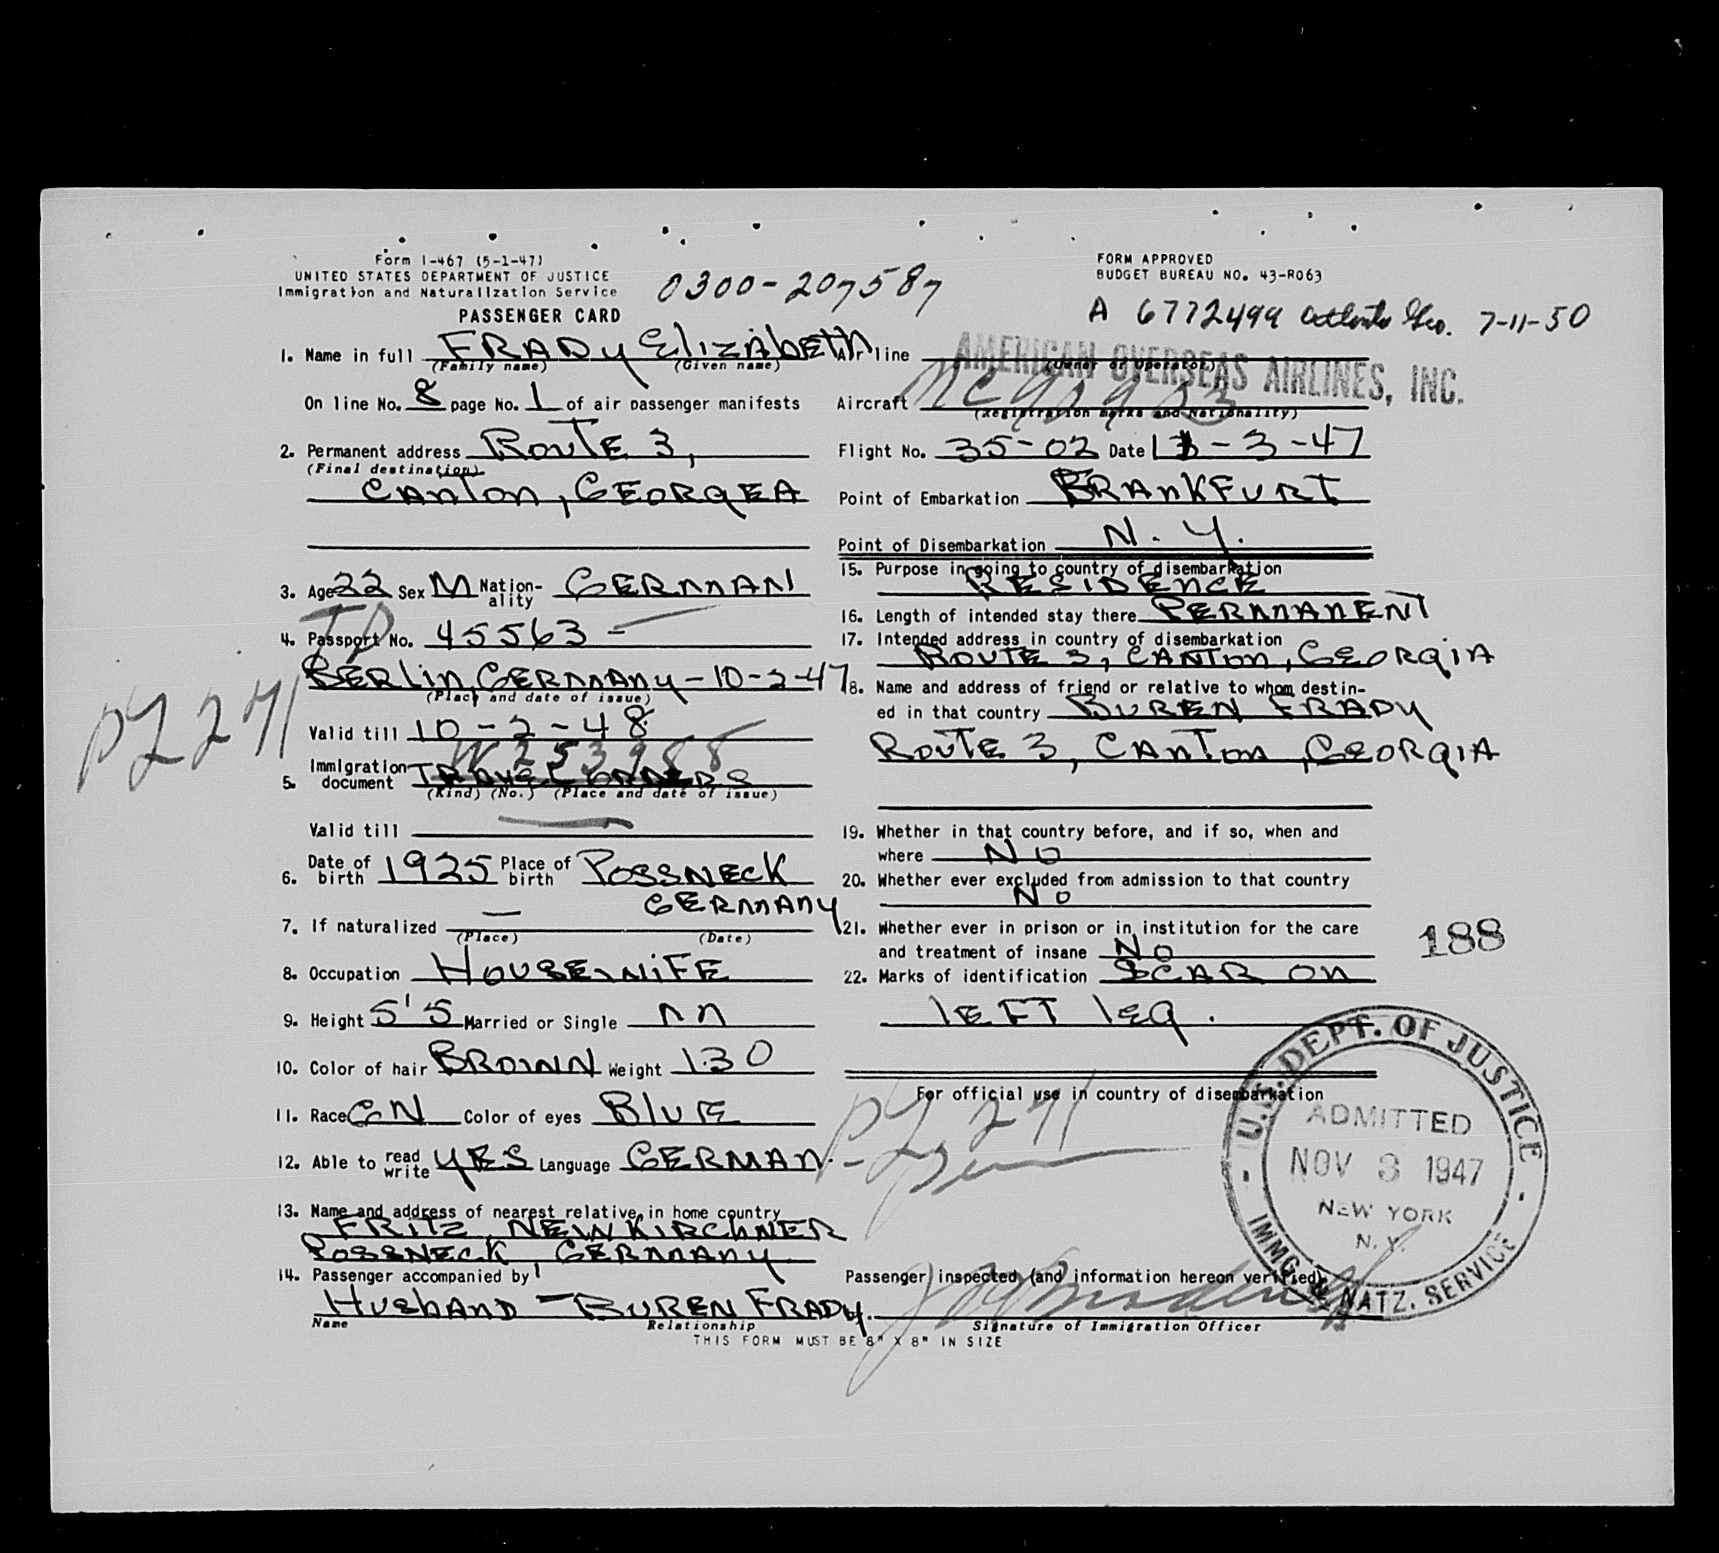 Form I-467 (5-1-47)
UNITED STATES DEPARTMENT OF JUSTICE
Immigration and Naturalization Service
PASSENGER CARD
0300-207587
FORM APPROVED
BUDGET BUREAU NO. 43-R063
A 6772499 Atlanta Geo. 7-11-50
1. Name in full FRADY ElizAbETh
(Family name) (Given name)
On line No. 8 page No. 1 of air passenger manifests
2. Permanent address ROUTE 3,
(Final destination)
CANTON, GEORGEA
3. Age 22 Sex M Nationality GERMAN
TP
4. Passport No. 45563 -
BERLIN, GERMANY - 10-2-47
(Place and date of issue)
PL 271
Valid till 10-2-48
W 253988
5. Immigration document TRAVEL ORDERS
(Kind) (No.) (Place and date of issue)
Valid till
6. Date of birth 1925 Place of birth POSSNECK
GERMANY
7. If naturalized —
(Place) (Date)
8. Occupation HOUSEWIFE
9. Height 5'5 Married or Single M
10. Color of hair BROWN Weight 130
11. Race GN Color of eyes BLUE
12. Able to read write YES Language GERMAN.
13. Name and address of nearest relative in home country
FRITZ NEWKIRCHNER
POSSNECK, GERMANY
14. Passenger accompanied by
HUSbAND - BUREN FRADY.
Name Relationship
Airline AMERICAN OVERSEAS AIRLINES, INC.
(Owner or Operator)
Aircraft NC 90903
(Registration marks and Nationality)
Flight No. 35-02 Date 11-3-47
Point of Embarkation FRANKFURT
Point of Disembarkation N.Y.
15. Purpose in going to country of disembarkation
RESIDENCE
16. Length of intended stay there PERMANENT
17. Intended address in country of disembarkation
ROUTE 3, CANTON, GEORGIA
18. Name and address of friend or relative to whom destin-
ed in that country BUREN FRADY
ROUTE 3, CANTON, GEORGIA
19. Whether in that country before, and if so, when and
where NO
20. Whether ever excluded from admission to that country
NO
21. Whether ever in prison or in institution for the care
and treatment of insane NO
22. Marks of identification SCAR ON
LEFT LEG.
188
For official use in country of disembarkation
PL 271
U.S. DEPT. OF JUSTICE
ADMITTED
NOV 3 1947
NEW YORK
N.Y.
IMMG. & NATZ. SERVICE
Passenger inspected (and information hereon verified)
Signature of Immigration Officer
THIS FORM MUST BE 8" X 8" IN SIZE